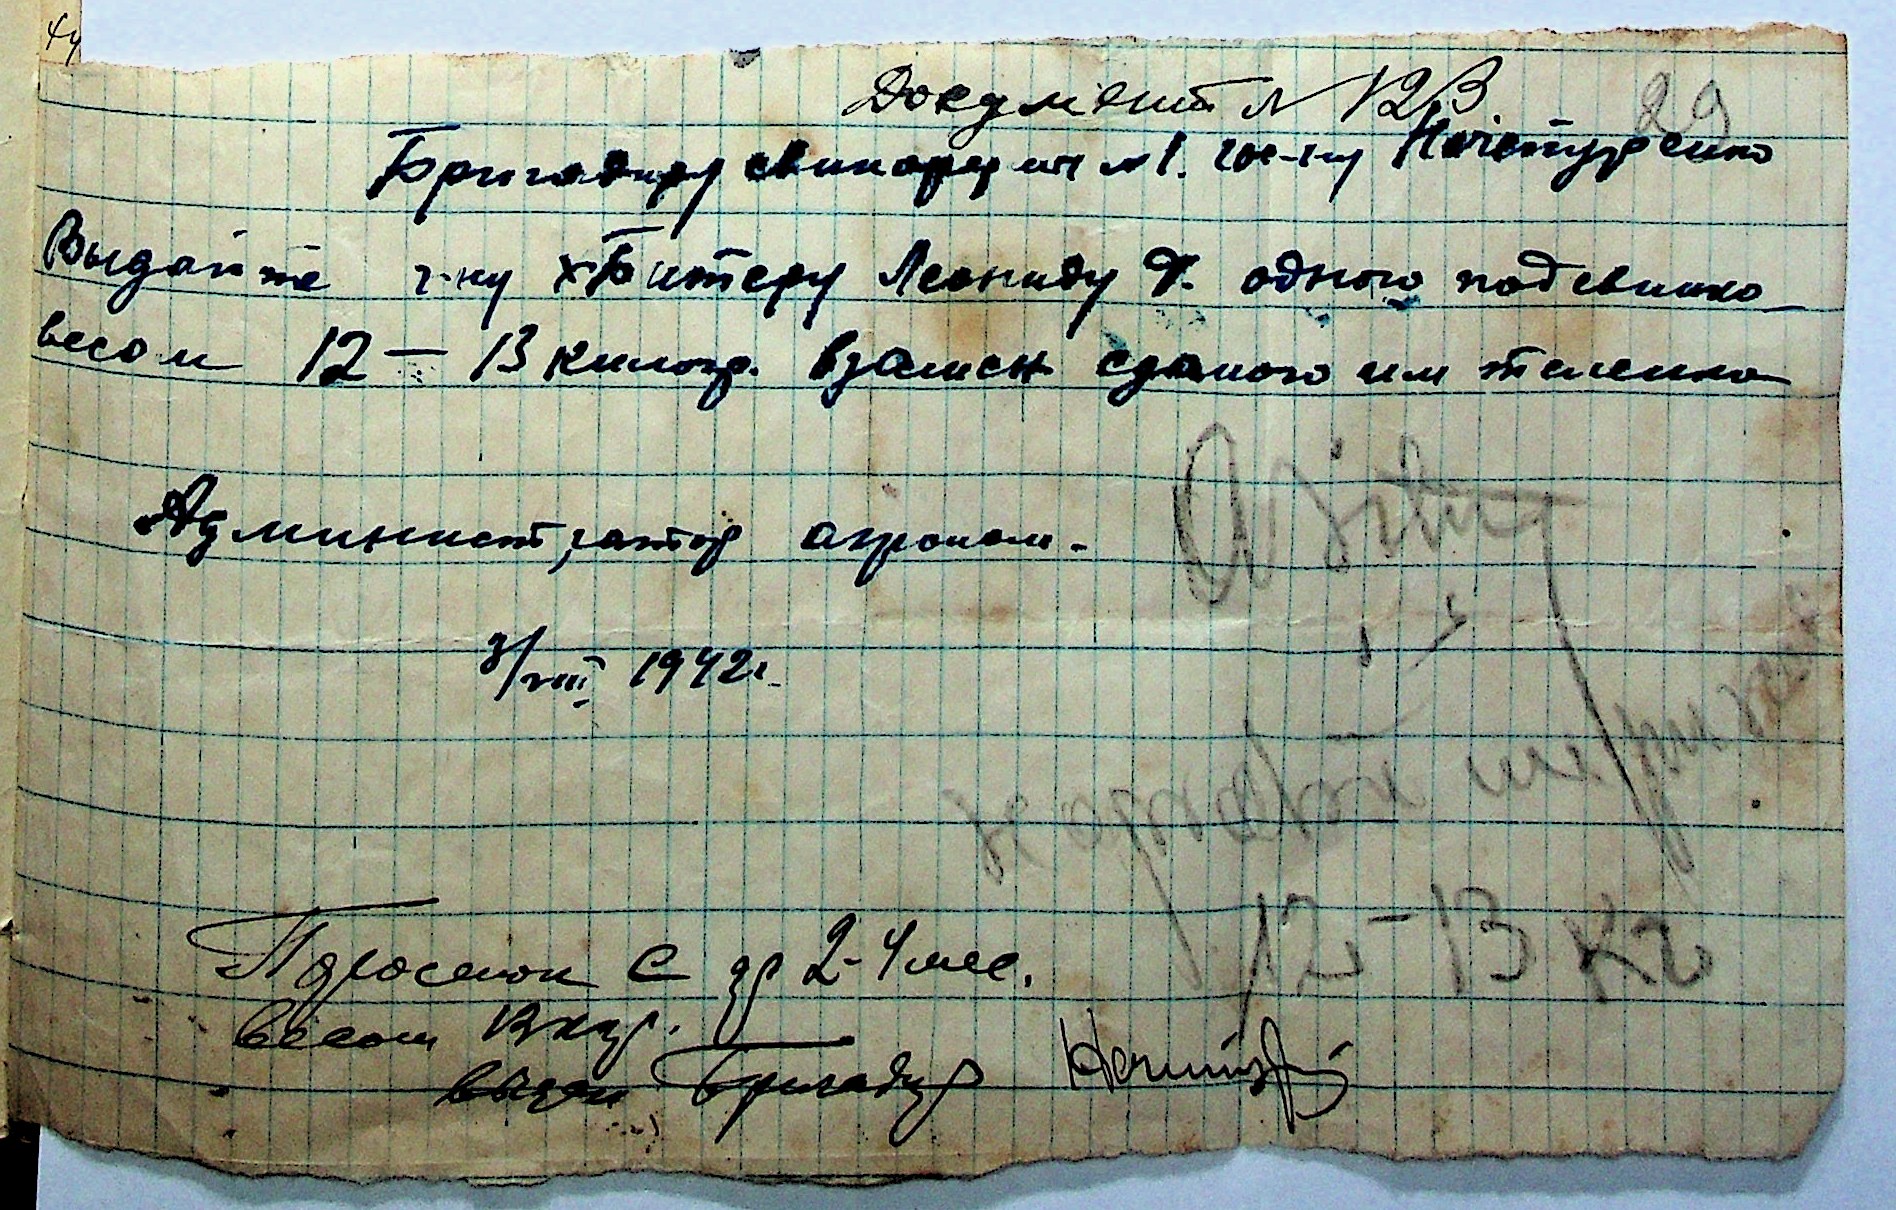 44
Документ № 123
29
Бригадиру свинофермы № 1. гос-ну
Выдайте г-ну Битеру Леониду Ф. одного подсвинка
весом 12 – 13 килогр. взамен сданого им теленка
Администратор агроном.
3/VIII 1942г.
12-13 кг
Поросенок с гр 2-4 мес.
весом 13 кгр.
выдал Бригадир